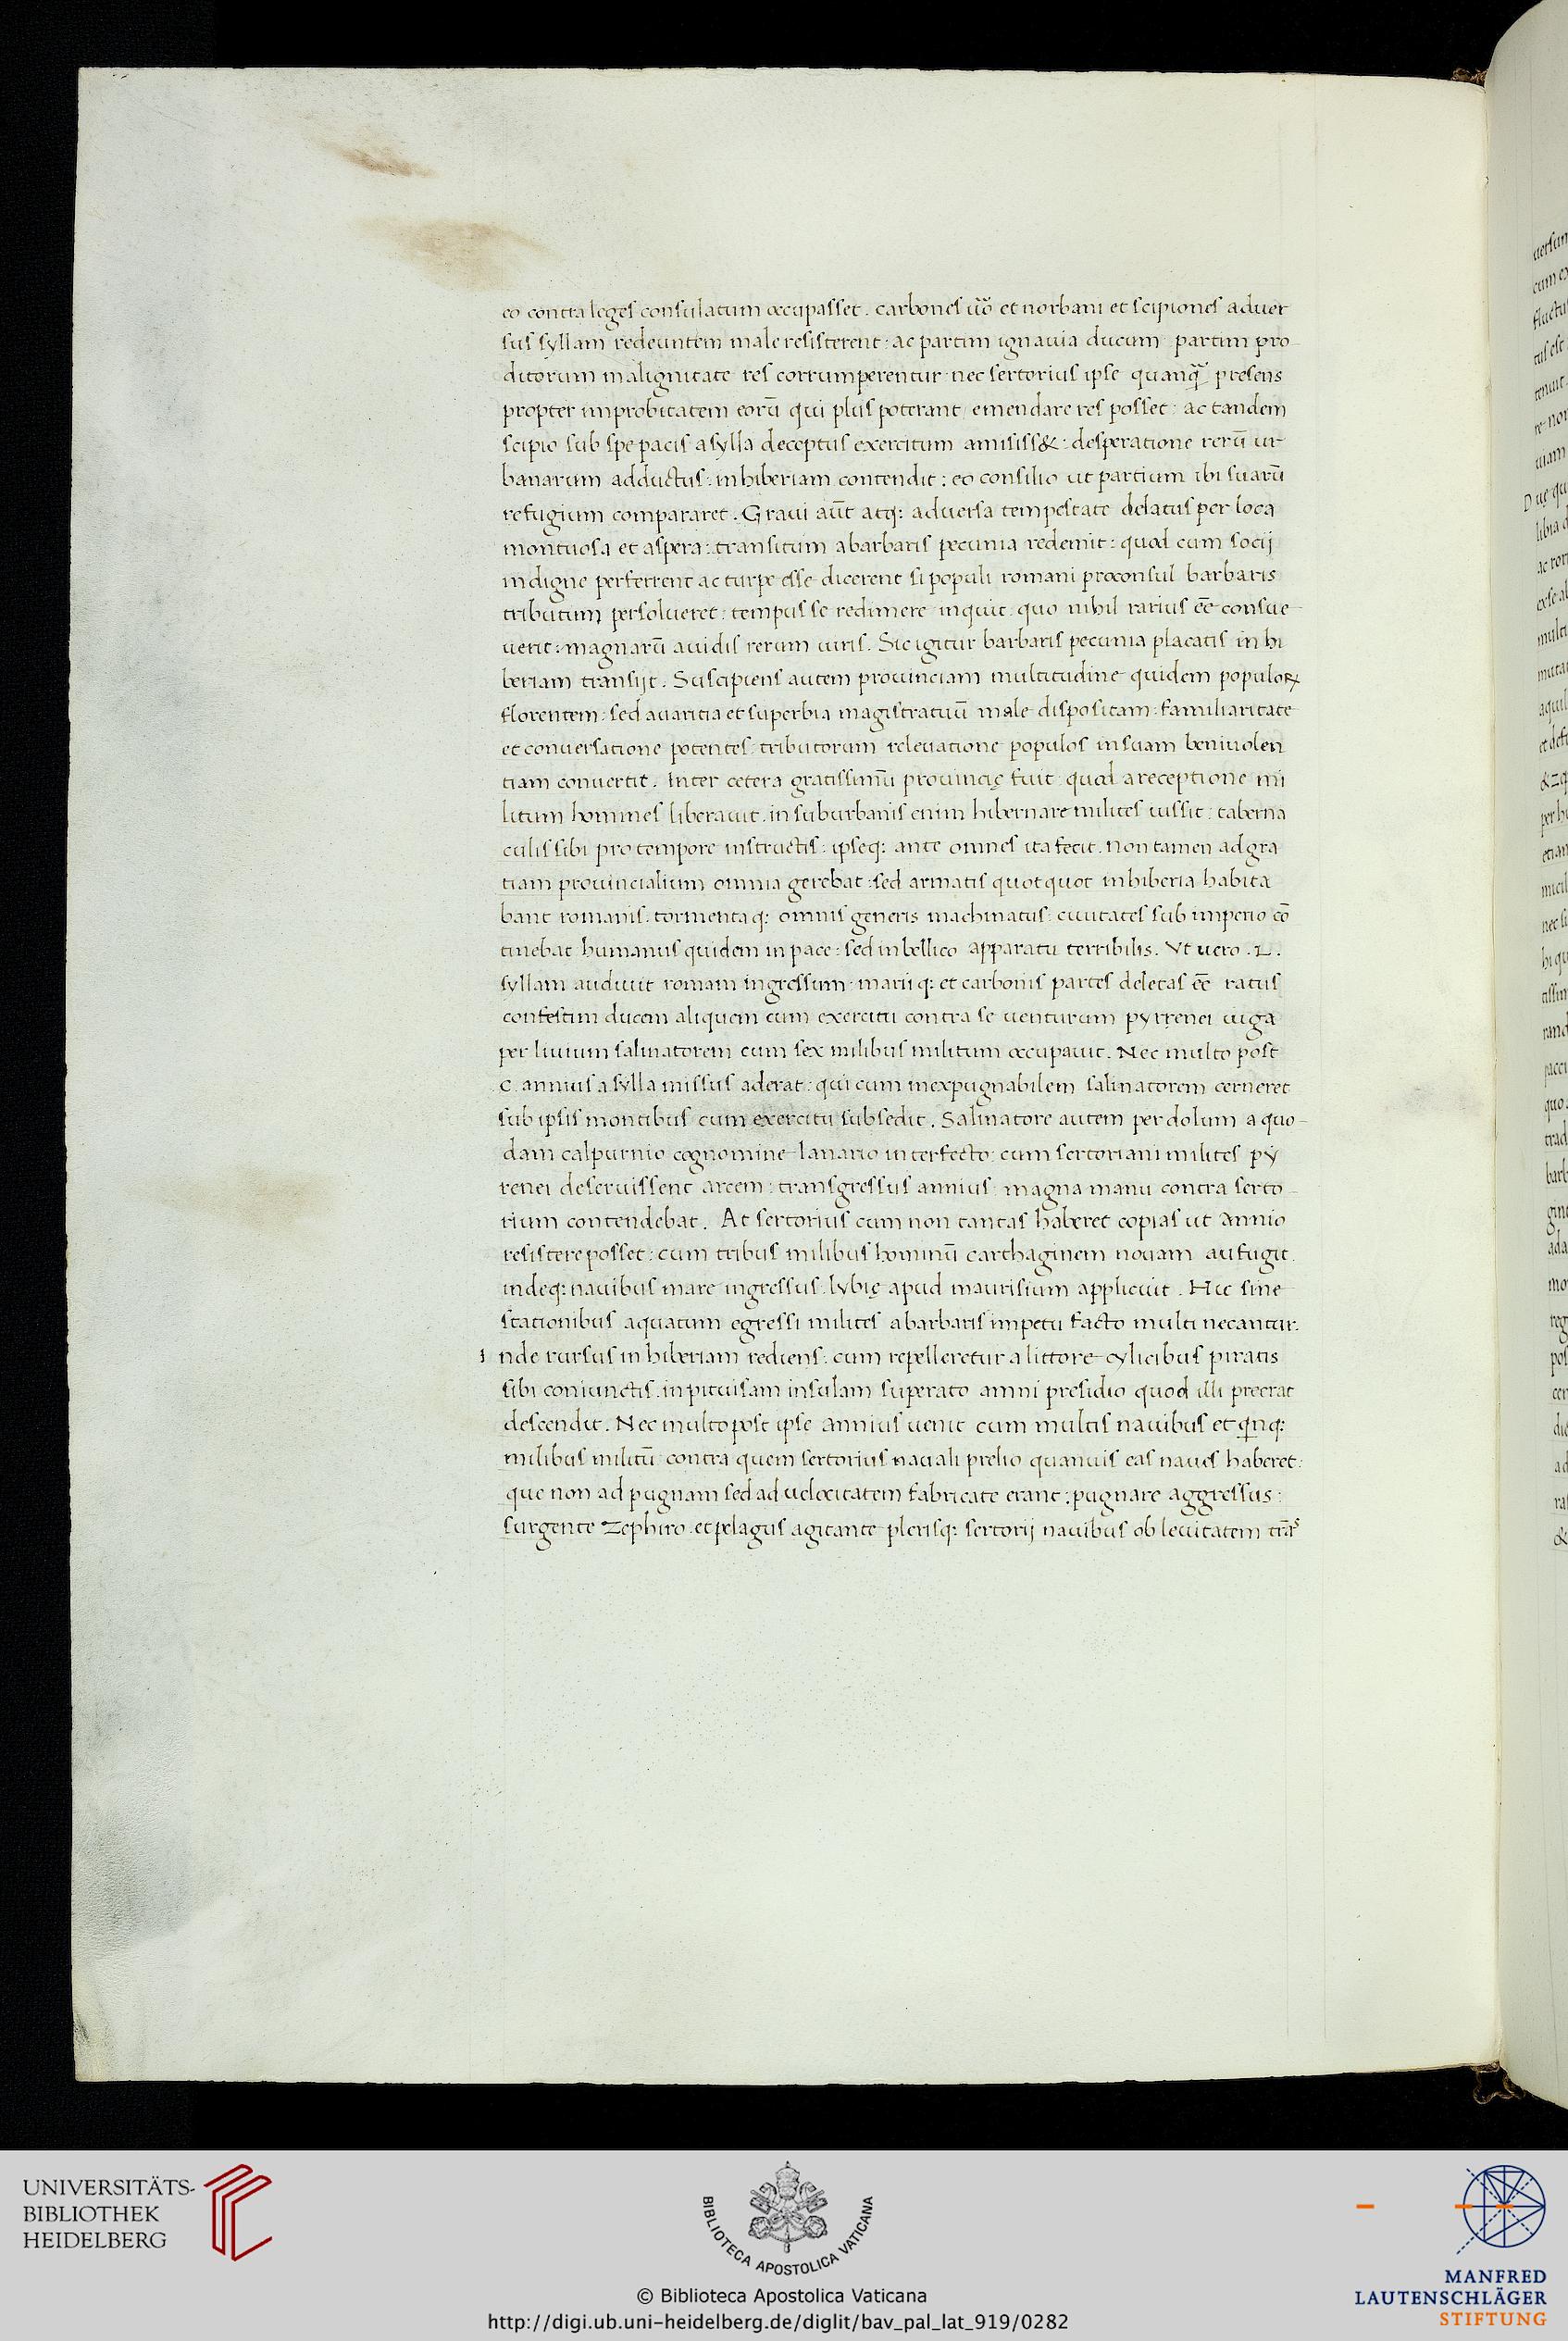 eo contra leges consulatum occupasset. carbones ũo et norbani et scipiones aduer
sus syllam redeuntem male resisterent: ac partim ignauia ducum partim pro-
ditorum malignitate res corrumperentur nec sertorius ipse quanq̃ presens
propter improbitatem eorũ qui plus poterant emendare res posset: ac tandem
scipio sub spe pacis a sylla deceptus exercitum amisiss&: desperatione rerũ ur-
banarum adductus: in hiberiam contendit: eo consilio ut partium ibi suarũ
refugium compararet. Graui aũt atq: aduersa tempestate delatus per loca
montuosa et aspera: transitum a barbaris pecunia redemit: quod cum socij
indigne perferrent ac turpe esse dicerent si populi romani proconsul barbaris
tributum persolueret: tempus se redimere inquit quo nihil rarius eẽ consue-
uerit: magnarũ auidis rerum uiris. Sic igitur barbaris pecunia placatis in hi
beriam transijt. Suscipiens autem prouinciam multitudine quidem populoꝝ
florentem: sed auaritia et superbia magistratuũ male dispositam: familiaritate
et conuersatione potentes: tributorum releuatione populos in suam beniuolen
tiam conuertit. Inter cetera gratissimũ prouincię fuit quod a receptione mi
litum homines liberauit. in suburbanis enim hibernare milites iussit: taberna
culis sibi pro tempore instructis: ipseq: ante omnes ita fecit. non tamen ad gra
tiam prouincialium omnia gerebat: sed armatis quotquot in hiberia habita
bant romanis. tormentaq: omnis generis machinatus: ciuitates sub imperio cõ
tinebat humanus quidem in pace: sed in bellico apparatu terribilis. Vt uero .L.
syllam audiuit romam ingressum mariiq: et carbonis partes deletas eẽ ratus
confestim ducem aliquem cum exercitu contra se uenturum pyrrenei iuga
per liuium salinatorem cum sex milibus militum occupauit. Nec multo post
C. annius a sylla missus aderat: qui cum inexpugnabilem salinatorem cerneret
sub ipsis montibus cum exercitu subsedit. Salinatore autem per dolum a quo-
dam calpurnio cognomine lanario interfecto: cum sertoriani milites py
renei deseruissent arcem: transgressus annius: magna manu contra serto-
rium contendebat. At sertorius cum non tantas haberet copias ut annio
resistere posset: cum tribus milibus hominũ carthaginem nouam aufugit.
indeq: nauibus mare ingressus. lybię apud maurisium applicuit. Hic sine
stationibus aquatum egressi milites a barbaris impetu facto multi necantur.
Inde rursus in hiberiam rediens. cum repelleretur a littore cylicibus piratis
sibi coniunctis. in pituisam insulam superato amni presidio quod illi preerat
descendit. Nec multo post ipse annius uenit cum multis nauibus et q̃nq:
milibus militũ: contra quem sertorius nauali prelio quanuis eas naues haberet:
que non ad pugnam sed ad uelocitatem fabricate erant: pugnare aggressus:
surgente Zephiro et pelagus agitante plerisq: sertorij nauibus ob leuitatem trãs
UNIVERSITÄTS-
BIBLIOTHEK
HEIDELBERG
BIBLIOTECA APOSTOLICA VATICANA
© Biblioteca Apostolica Vaticana
http://digi.ub.uni-heidelberg.de/diglit/bav_pal_lat_919/0282
MANFRED
LAUTENSCHLÄGER
STIFTUNG